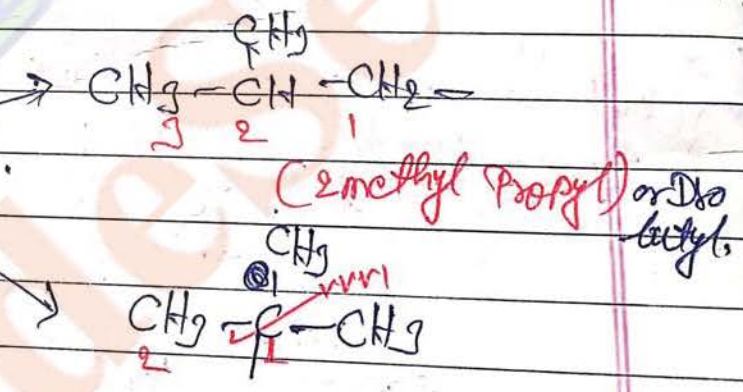 CH3
CH3-CH-CH2-
3 2 1
(2methyl Propyl) or Iso
butyl,
CH3
CH3-C-CH3
2 1